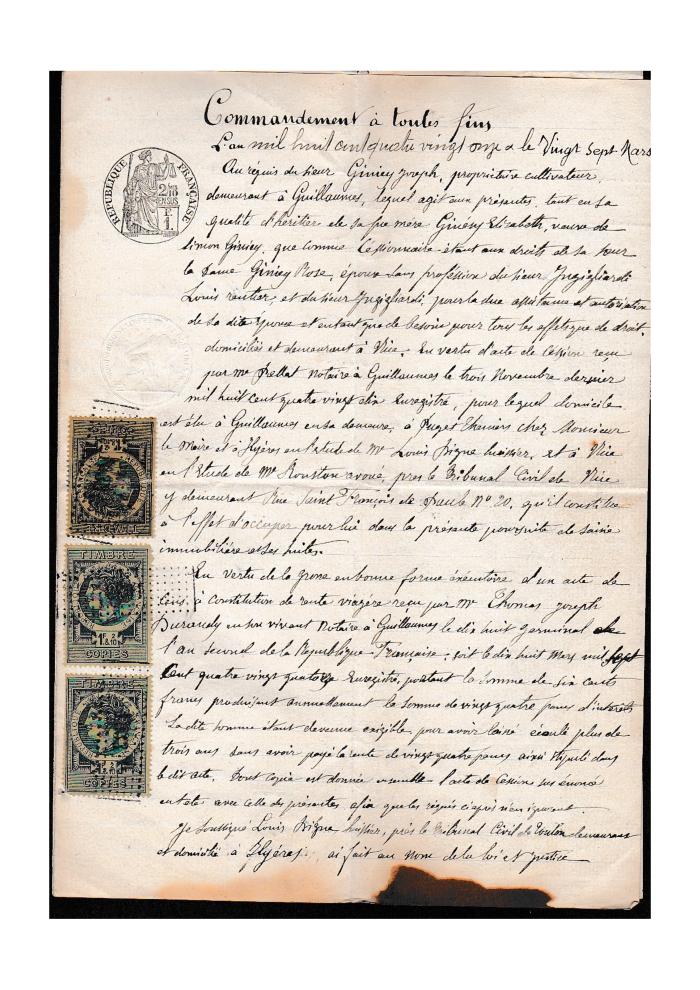 Commandement à toutes fins
L'an mil huit cent quatre vingt onze & le Vingt Sept Mars
Au réquis du sieur Giniey Joseph, propriétaire cultivateur,
demeurant à Guillaumes, lequel agit aux présentes, tant en sa
qualité d'héritier de sa feue mère Giniey Elizabeth, veuve de
Simon Giniey, que comme Cessionnaire étant aux droits de sa sœur
la Dame Giniey Rose, épouse sans profession du sieur Ingigliardi
Louis rentier, et du sieur Ingigliardi, pour la due assistance et autorisation
de sa dite épouse et en tant que de besoin pour tous les effets que de droit,
domiciliés et demeurant à Nice. En vertu d'acte de Cession reçu
par Me Prellat Notaire à Guillaumes le trois Novembre dernier
mil huit cent quatre vingt dix Enregistré, pour lequel domicile
est élu à Guillaumes en sa demeure, à Puget Théniers chez Monsieur
le Maire et à Hyères en l'étude de Me Louis Bigne huissier, et à Nice
en l'étude de Me Rouston avoué, près le Tribunal Civil de Nice
y demeurant Rue Saint François de Paule No 20, qu'il constitue
à l'effet d'occuper pour lui dans la présente poursuite de saisie
immobilière et ses suites.
En vertu de la grosse en bonne forme exécutoire d'un acte de
à Constitution de rente viagère reçu par Me Thomas Joseph
Durandy en son vivant Notaire à Guillaumes le dix huit Germinal de
l'an second de la République Française, soit le dix huit Mars mil sept
Cent quatre vingt quatorze Enregistré, portant la somme de six cents
francs produisant annuellement la somme de vingt quatre francs d'intérêts
La dite somme étant devenue exigible pour avoir laissé écoulé plus de
trois ans sans avoir payé la rente de vingt quatre francs ainsi stipulé dans
le dit acte. Dont copie est donnée ensemble l'acte de Cession sus énoncé
en tête avec celle des présentes afin que les requis ci après n'en ignorent.
Je soussigné Louis Bigne huissier, près le Tribunal Civil de Toulon demeurant
et domicilié à Hyères, ai fait au nom de la loi et justice
RÉPUBLIQUE FRANÇAISE
2/10
EN SUS
F.
1.
TIMBRE
1F 2
&10
COPIES
TIMBRE
1F 2
&10
COPIES